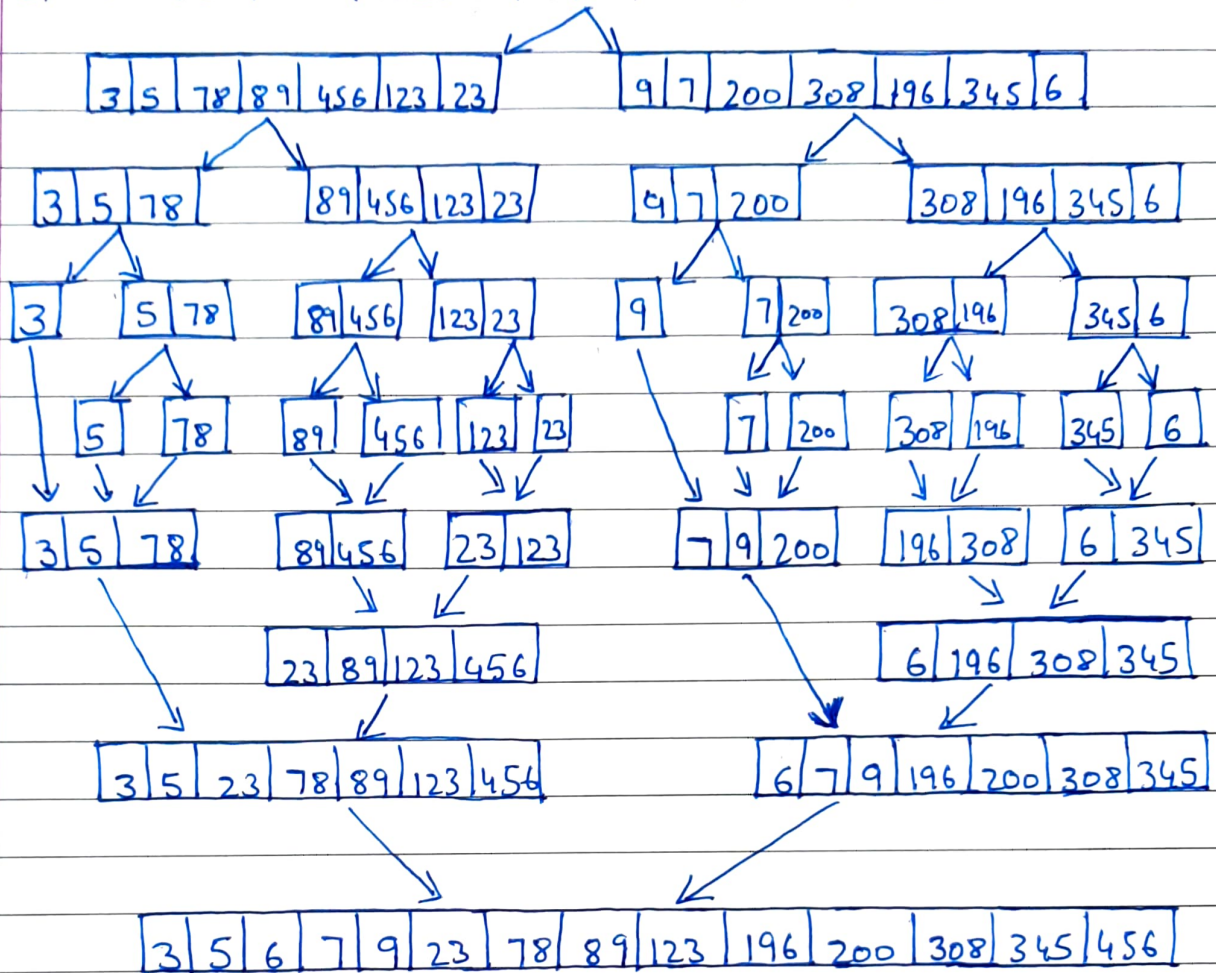 3 5 78 89 456 123 23 9 7 200 308 196 345 6
3 5 78 89 456 123 23 9 7 200 308 196 345 6
3 5 78 89 456 123 23 9 7 200 308 196 345 6
5 78 89 456 123 23 7 200 308 196 345 6
3 5 78 89 456 23 123 7 9 200 196 308 6 345
23 89 123 456 6 196 308 345
3 5 23 78 89 123 456 6 7 9 196 200 308 345
3 5 6 7 9 23 78 89 123 196 200 308 345 456